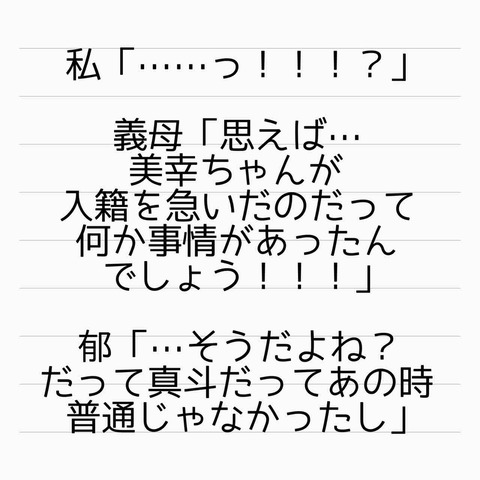 私「……っ！！！？」
義母「思えば…
美幸ちゃんが
入籍を急いだのだって
何か事情があったん
でしょう！！！」
郁「…そうだよね？
だって真斗だってあの時
普通じゃなかったし」